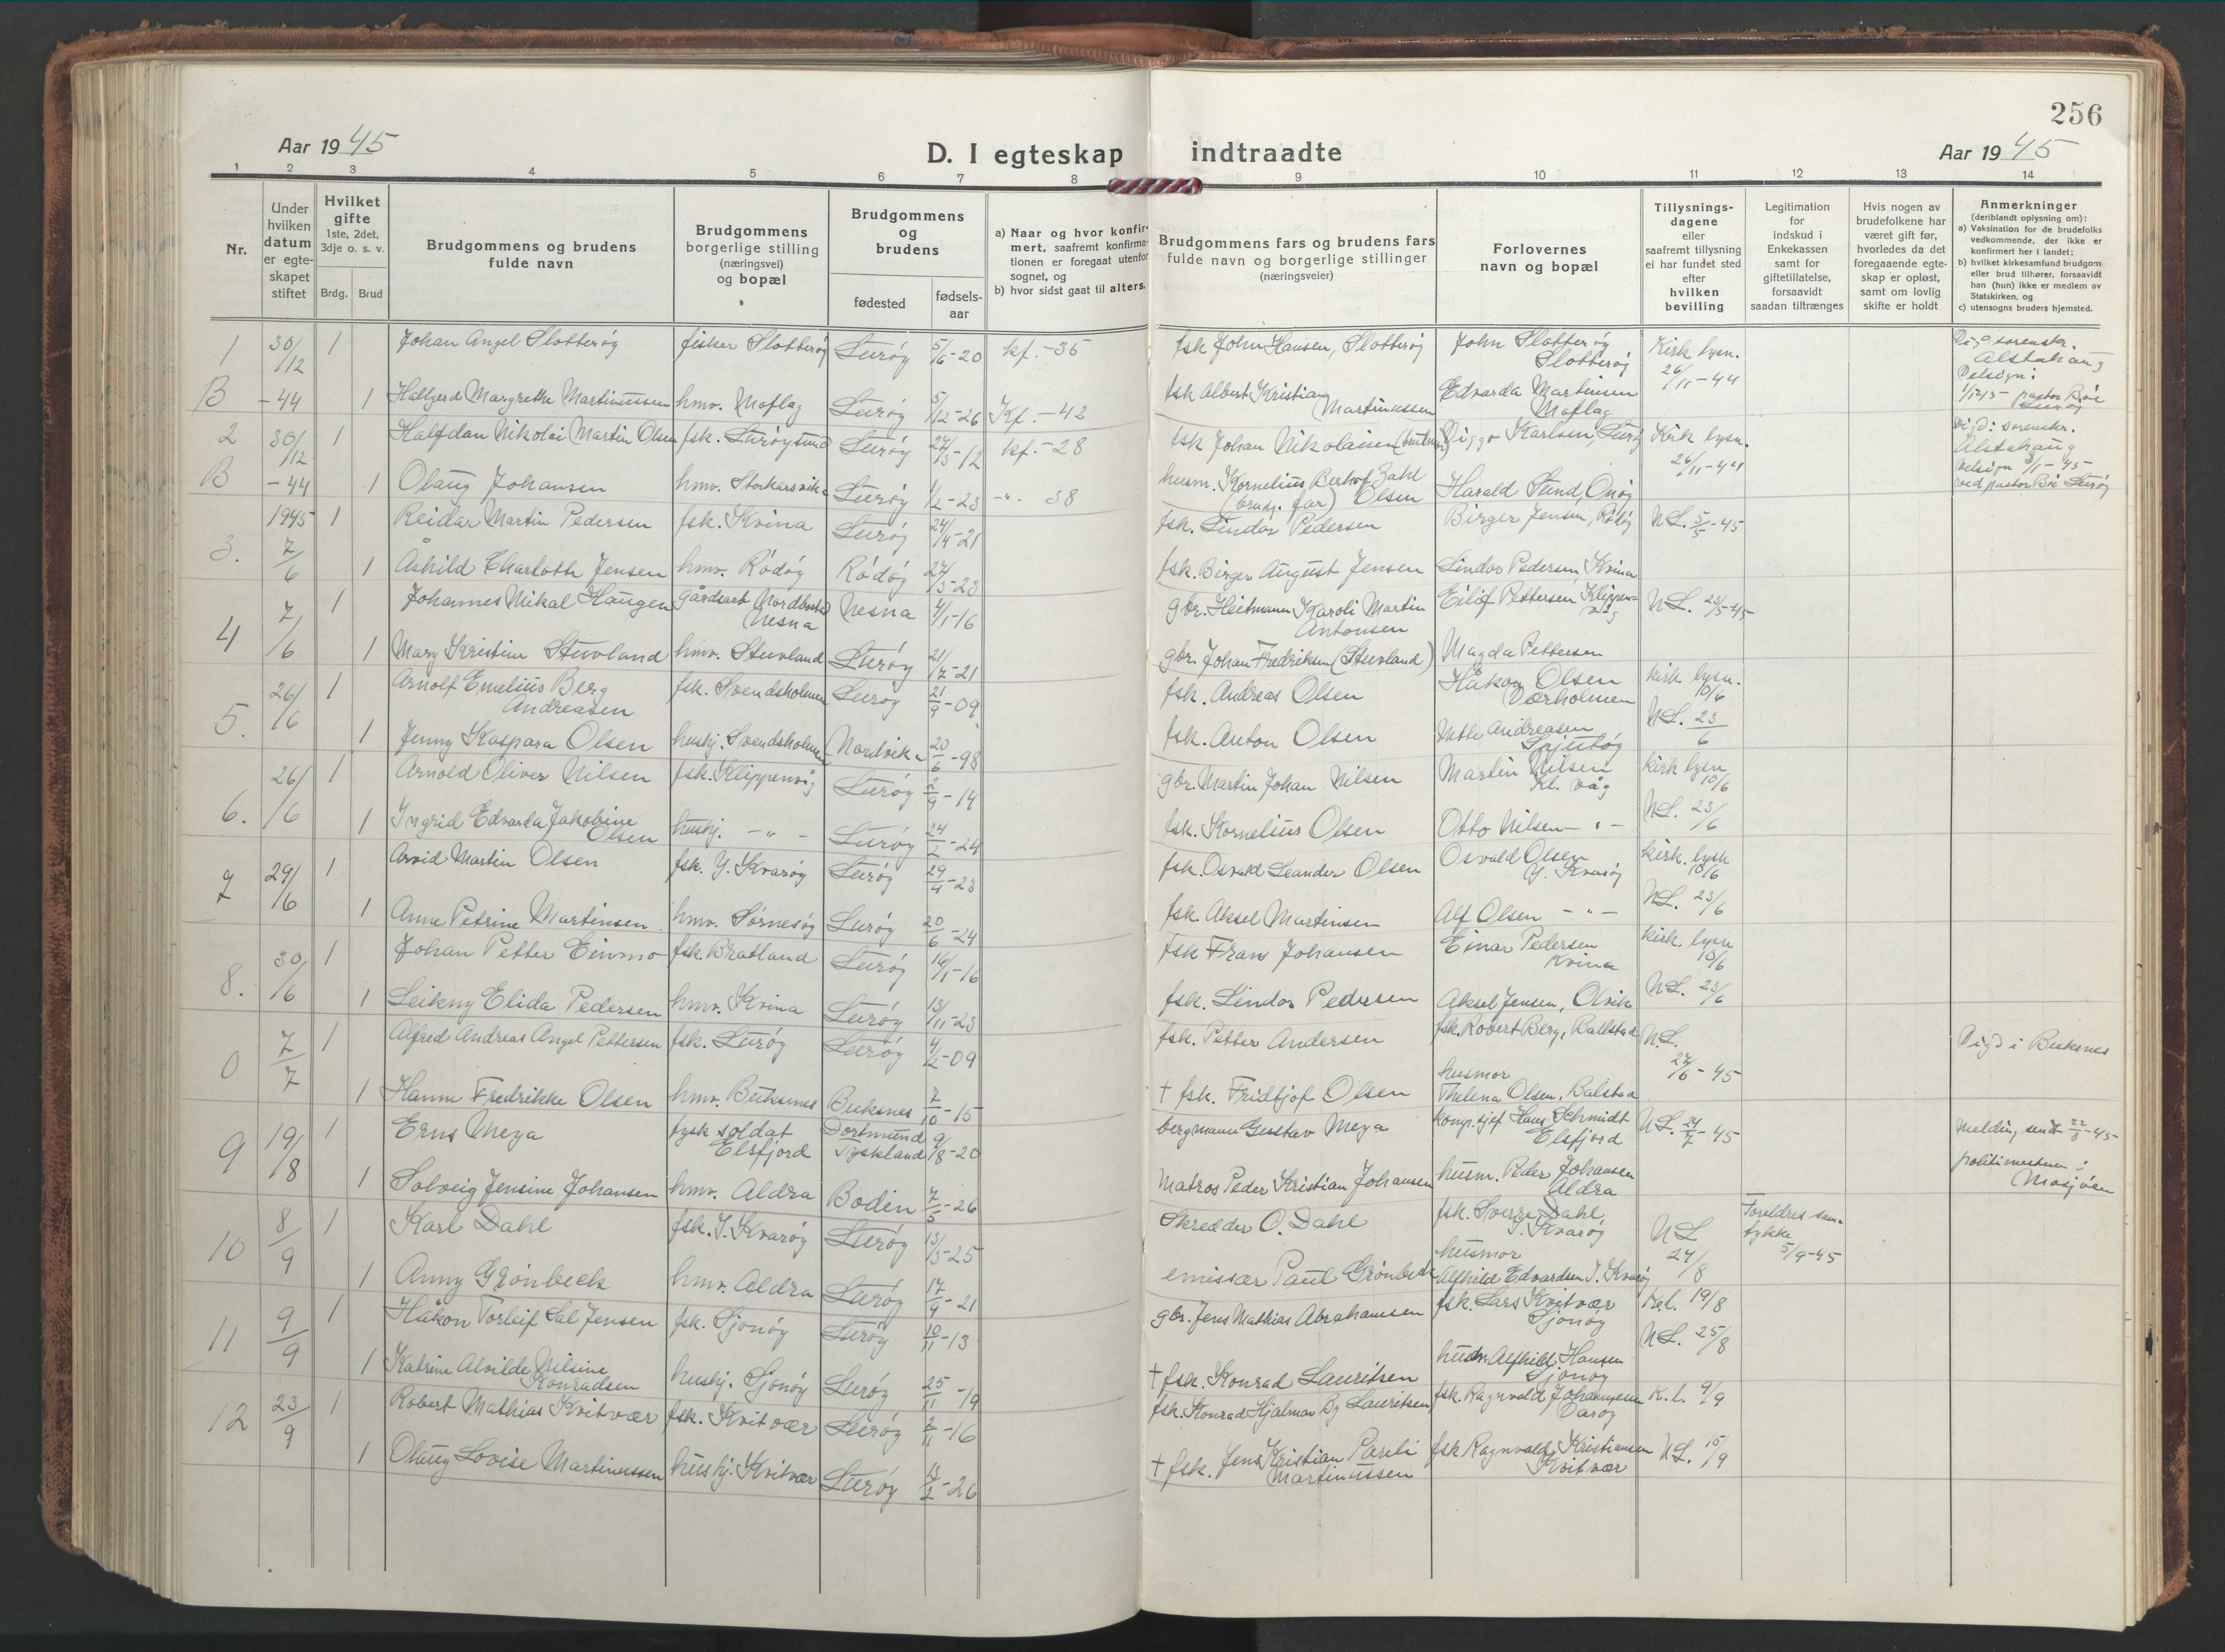 256
Aar 1945
D. I egteskap indtraadte
Aar 1945
1 2 3 4 5 6 7 8 9 10 11 12 13 14
Nr.
Under hvilken datum er egteskapet stiftet
Hvilket gifte 1ste, 2det, 3dje o. s. v.
Brdg. Brud
Brudgommens og brudens fulde navn
Brudgommens borgerlige stilling (næringsvei) og bopæl
Brudgommens og brudens
fødested
fødsels-aar
a) Naar og hvor konfirmert, saafremt konfirmationen er foregaat utenfor sognet, og
b) hvor sidst gaat til alters.
Brudgommens fars og brudens fars fulde navn og borgerlige stillinger (næringsveier)
Forlovernes navn og bopæl
Tillysningsdagene eller saafremt tillysning ei har fundet sted efter hvilken bevilling
Legitimation for indskud i Enkekassen samt for giftetillatelse, forsaavidt saadan tiltrænges
Hvis nogen av brudefolkene har været gift før, hvorledes da det foregaaende egteskap er opløst, samt om lovlig skifte er holdt
Anmerkninger (deriblandt oplysning om):
a) Vaksination for de brudefolks vedkommende, der ikke er konfirmert her i landet;
b) hvilket kirkesamfund brudgom eller brud tilhører, forsaavidt han (hun) ikke er medlem av Statskirken, og
c) utensogns bruders hjemsted.
1 30/12 1 Johan Angel Slotterøy fisker Slotterøy Lurøy 5/6-20 kf.-35 fsk John Hansen, Slotterøy John Slotterøy Slotterøy Kirk lysn. 26/11-44 Alstahaug
B -44 1 Hallgerd Margrethe Martinussen hmv. Moflag Lurøy 5/12-26 Kf.-42 fsk Albert Kristian Martinussen Edvarda Martinsen Moflag
2 30/12 1 Halfdan Nikolai Martin Olsen fsk. Lurøysund Lurøy 27/3-12 kf.-28 fsk Johan Nikolaisen Viggo Karlsen, Lurøy Kirk lysn. 26/11-44 Vigd: sorenskr. Alstahaug
B -44 1 Olaug Johansen hmv. Storkarsvik Lurøy 1/2-23 -"- 38 husm. Kornelius Olsen Harald Sund, Onøy velsign 3/1-45 ved pastor Bøe Lurøy
3. 1945 7/6 1 Reidar Martin Pedersen fsk. Kvina Lurøy 24/4-21 fsk. Lindor Pedersen Birger Jensen, Rødøy N.L. 5/5-45
1 Åshild Charlotte Jensen hmv. Rødøy Rødøy 27/3-23 fsk. Birger August Jensen Lindor Pedersen Kvina
4 7/6 1 Johannes Mikal Haugen gårdsarb Nesna Nesna 4/1-16 gbr. Heitmann Karoli Martin Antonsen Eilif Pettersen Klippenvåg N.L. 23/5-45
1 Mary Kristine Stuvland hmv. Stuvland Lurøy 21/7-21 gbr. Johan Fredriksen (Stuvland) Magda Pettersen
5. 26/6 1 Arnolf Emelius Berg Andreasen fsk. Svendsholmen Lurøy 21/9-09 fsk. Andreas Olsen Håkon Olsen Værholmen kirk lysn. 10/6
1 Jenny Kaspara Olsen hushj. Svendsholmen Nordvika 20/6-98 fsk. Anton Olsen Andreasen N.L. 23/6
6. 26/6 1 Arnold Oliver Nilsen fsk. Klippenvåg Lurøy 2/9-14 gbr. Martin Johan Nilsen Martin Nilsen Kl. våg kirk lysn 10/6
1 Ingrid Edvarda Jakobine Olsen hushj. -"- Lurøy 24/2-24 fsk. Kornelius Olsen Otto Nilsen -"- N.L. 23/6
7 29/6 1 Arvid Martin Olsen fsk. Y. Kvarøy Lurøy 29/4-23 fsk. Osvald Leander Olsen Osvald Olsen Y. Kvarøy kirk. lysn 10/6
1 Anne Petrine Martinsen hmv. Sørnesøy Lurøy 20/6-24 fsk. Aksel Martinsen Alf Olsen -"- N.L. 23/6
8. 30/6 1 Johan Petter Einmo fsk. Bratland Lurøy 16/1-16 fsk Frans Johansen Einar Pedersen Kvina kirk. lysn 10/6
1 Leikny Elida Pedersen hmv. Kvina Lurøy 13/11-23 fsk. Lindor Pedersen Aksel Jensen, Olvik N.L. 23/6
0 7/7 1 Alfred Andreas Angel Pettersen fsk. Lurøy Lurøy 4/2-09 fsk. Petter Andersen fsk. Robert Berg, Ballstad N.L. 27/6-45 Vigd i Buksnes
1 Hanne Fredrikke Olsen hmv. Buksnes Buksnes 7/10-15 + fsk. Fridtjof Olsen husmor Thelena Olsen, Balstad
9 19/8 1 Erns Meya tysk soldat Elsfjord Dortmund Tyskland 9/8-20 bergmann Gustav Meya komp. sjef Hans Schmidt Elsfjord N.L. 24/7-45 melding sendt 22/8-45
1 Solveig Jensine Johansen hmv. Aldra Bodin 7/5-26 Matros Peder Kristian Johansen husm. Peder Johansen Aldra politimesteren i Mosjøen
10 8/9 1 Karl Dahl fsk. I. Kvarøy Lurøy 13/3-25 Skredder O. Dahl fsk. Sverre Dahl I. Kvarøy N.L 24/8 Foreldres samtykke 5/9-45
1 Anny Grønbeck hmv. Aldra Lurøy 17/9-21 emissær Paul Grønbeck husmor Alfhild Edvardsen I. Kvarøy
11 9/9 1 Håkon Torleif Sal Jensen fsk. Sjonøy Lurøy 10/11-13 gbr. Jens Mathias Abrahamsen fsk. Lars Kvitvær Sjonøy 19/8
1 Katrine Alvilde Nilsine Konradsen hushj. Sjonøy Lurøy 25/11-19 + fsk. Konrad Lauritsen Alfhild Hansen Sjonøy N.L. 25/8
12 23/9 1 Robert Mathias Kvitvær fsk. Kvitvær Lurøy 2/11-16 fsk. Konrad Hjalmar Lauritsen fsk. Ragnvald Johannesen K.l. 9/9
1 Olaug Lovise Martinussen hushj. Kvitvær Lurøy 13/2-26 + fsk. Jens Kristian Pareli Martinussen fsk Ragnvald Kristiansen Kvitvær N.L. 15/9